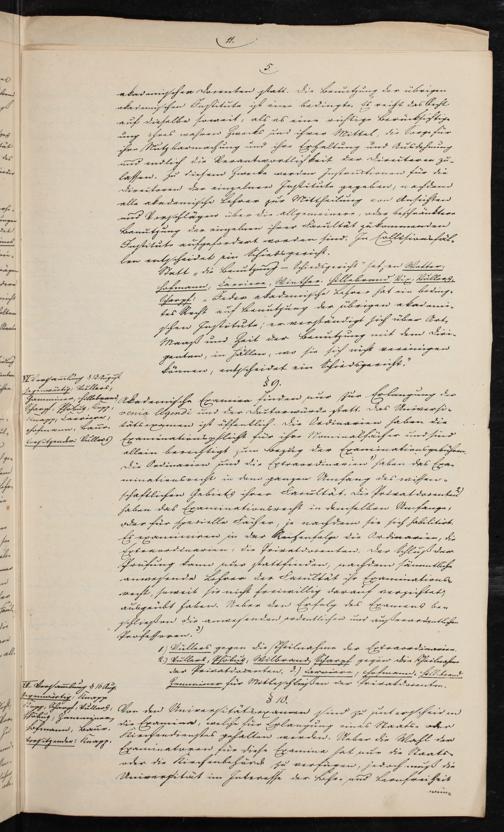 11.
5.
akademischen Docenten statt. Die Benutzung der übrigen
akademischen Institute ist eine bedingte. Es reicht das Recht
auf dieselbe soweit, als es eine richtige Berücksichtig-
ung ihres wahren Zwecks und ihrer Mittel, die Sorge für
ihre Nutzbarmachung und ihre Erhaltung und Ausdehnung
und endlich die Verantwortlichkeit der Directoren zu-
lassen. Zu diesem Zwecke werden Instructionen für die
Directoren der einzelnen Institute gegeben, nachdem
alle akademische Lehrer zur Mittheilung von Ansichten
und Vorschlägen über die allgemeinere, oder beschränktere
Benutzung der einzelnen ihrer Facultät zukommenden
Institute aufgefordert worden sind. In Collisionsfäl-
len entscheidet ein Schiedsgericht.
Statt „die Benutzung – Schiedsgericht“ setzen
Hofmann, Carriere, Winther, Hillebrand, Vullers,
Scharpf: „Jeder akademische Lehrer hat ein beding-
tes Recht auf Benutzung der übrigen akademi-
schen Institute; er verständigt sich über Art,
Maaß und Zeit der Benutzung mit dem Diri-
genten, in Fällen, wo sie sich nicht vereinigen
können, entscheidet ein Schiedsgericht.“
§ 9.
Akademische Examina finden nur zur Erlangung der
venia legendi und der Doctorwürde statt. Das Universi-
tätsexamen ist öffentlich. Die Ordinarien haben die
Examinationspflicht für ihre Nominalfächer und sind
allein berechtigt zum Bezug der Examinationsgebühren.
Die Ordinarien und die Extraordinarien haben das Exa-
minationsrecht in dem ganzen Umfang des wissen-
schaftlichen Gebiets ihrer Facultät. Die Privatdocenten
haben das Examinationsrecht in demselben Umfange,
oder für specielle Fächer, je nachdem sie sich habilitirt.
Es examiniren in der Reihenfolge die Ordinarien, die
Extraordinarien, die Privatdocenten. Der Schluß der
Prüfung kann nur stattfinden, nachdem sämmtliche
anwesende Lehrer der Facultät ihr Examinations-
recht, soweit sie nicht freiwillig darauf verzichtet,
ausgeübt haben. Ueber den Erfolg des Examens be-
schließen die anwesenden ordentlichen und außerordentlichen
Professoren.
1) Vullers gegen die Theilnahme der Extraordinarien.
2) Vullers, Phöbus, Hillebrand, Scharpf gegen die Theilnahme
der Privatdocenten. 3) Carriere, Hofmann, Hillebrand,
für Mitbeschließen der Privatdocenten.
§ 10.
Von den Universitätsexamen sind zu unterscheiden
die Examina, welche zur Erlangung eines Staats- oder
Kirchendienstes gehalten werden. Ueber die Wahl der
Examinatoren für diese Examina hat nur die Staats-
oder die Kirchenbehörde zu verfügen, jedoch muß die
Universität im Interesse der Lehr- und Lernfreiheit
wün-